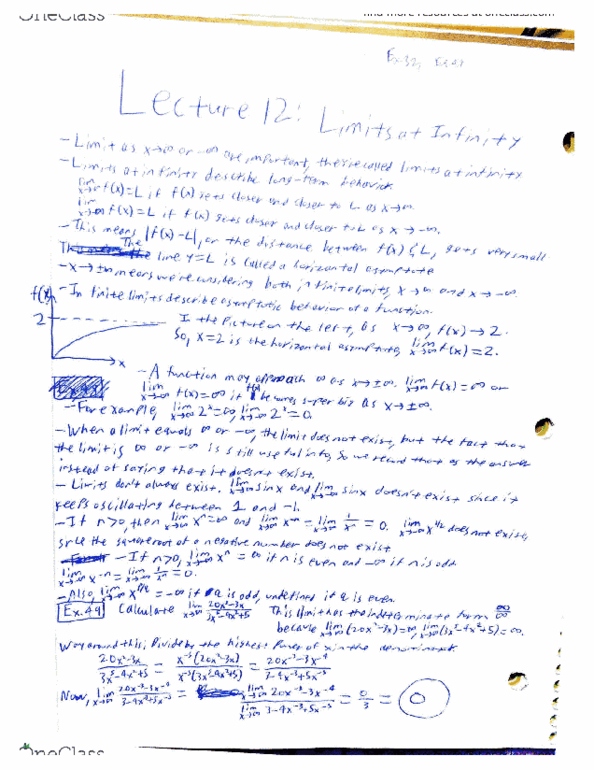 OneClass
find more resources at oneclass.com
Lecture 12: Limits at Infinity
- Limit as x→∞ or -∞ are important, they're called limits at infinity
- Limits at infinity describe long-term behavior.
lim x→∞ f(x)=L if f(x) gets closer and closer to L as x→∞.
lim x→-∞ f(x)=L if f(x) gets closer and closer to L as x→-∞.
- This means |f(x)-L|, or the distance between f(x) & L, gets very small
The line y=L is called a horizontal asymptote
- x→±∞ means we're considering both infinite limits, x→∞ and x→-∞.
- Infinite limits describe asymptotic behavior of a function.
f(x)
2
x
In the picture on the left, as x→∞, f(x)→2.
So, x=2 is the horizontal asymptote, lim x→∞ f(x)=2.
- A function may approach ∞ as x→±∞. lim x→∞ f(x)=∞ or
lim x→-∞ f(x)=∞ if f(x) becomes super big as x→±∞.
- For example, lim x→∞ 2^x=∞, lim x→-∞ 2^x=0.
- When a limit equals ∞ or -∞, the limit does not exist, but the fact that
the limit is ∞ or -∞ is still useful info, so we record that as the answer
instead of saying that it does not exist.
- Limits don't always exist. lim x→∞ sinx and lim x→-∞ sinx doesn't exist since it
keeps oscillating between 1 and -1.
- If n>0, then lim x→∞ x^n=∞ and lim x→∞ x^-n = lim x→∞ 1/x^n = 0. lim x→-∞ x^1/2 does not exist,
since the square root of a negative number does not exist
- If n>0, lim x→-∞ x^n = ∞ if n is even and -∞ if n is odd
lim x→-∞ x^-n = lim x→-∞ 1/x^n = 0.
- Also, lim x→-∞ x^p/q = -∞ if q is odd, undefined if q is even.
Ex.49 Calculate lim x→∞ 20x²-3x / 3x⁵-4x²+5 This limit has the indeterminate form ∞/∞
because lim x→∞ (20x²-3x)=∞, lim x→∞ (3x⁵-4x²+5)=∞.
Way around this: Divide by the highest power of x in the denominator
20x²-3x / 3x⁵-4x²+5 = x^-5(20x²-3x) / x^-5(3x⁵-4x²+5) = 20x^-3-3x^-4 / 3-4x^-3+5x^-5
Now, lim x→∞ 20x^-3-3x^-4 / 3-4x^-3+5x^-5 = lim x→∞ 20x^-3-3x^-4 / lim x→∞ 3-4x^-3+5x^-5 = 0/3 = 0
OneClass